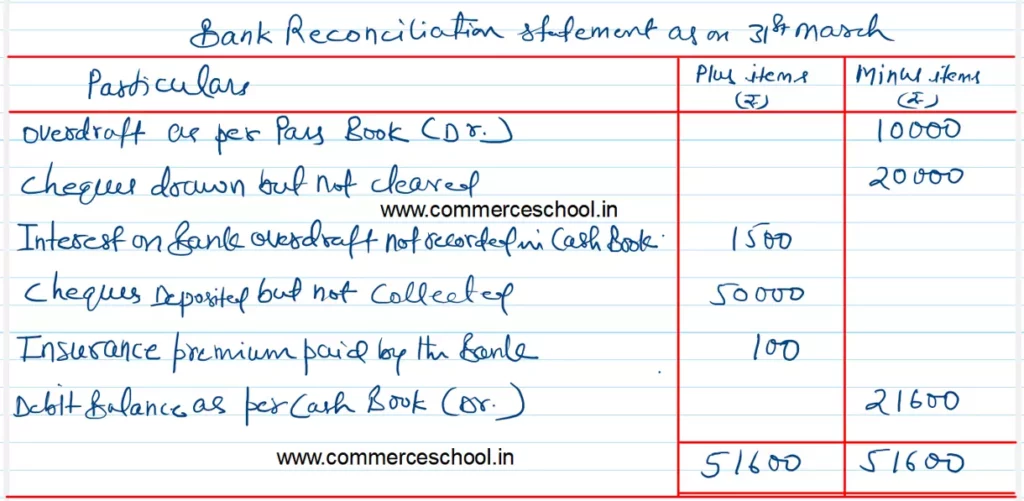 Bank Reconciliation statement as on 31st March
Particulars Plus items (₹) Minus items (₹)
Overdraft as per Pass Book (Dr.) 10000
Cheques drawn but not cleared 20000
www.commerceschool.in
Interest on Bank overdraft not recorded in Cash Book. 1500
Cheques Deposited but not Collected 50000
Insurance premium paid by the Bank 100
Debit Balance as per Cash Book (Dr.) 21600
www.commerceschool.in 51600 51600